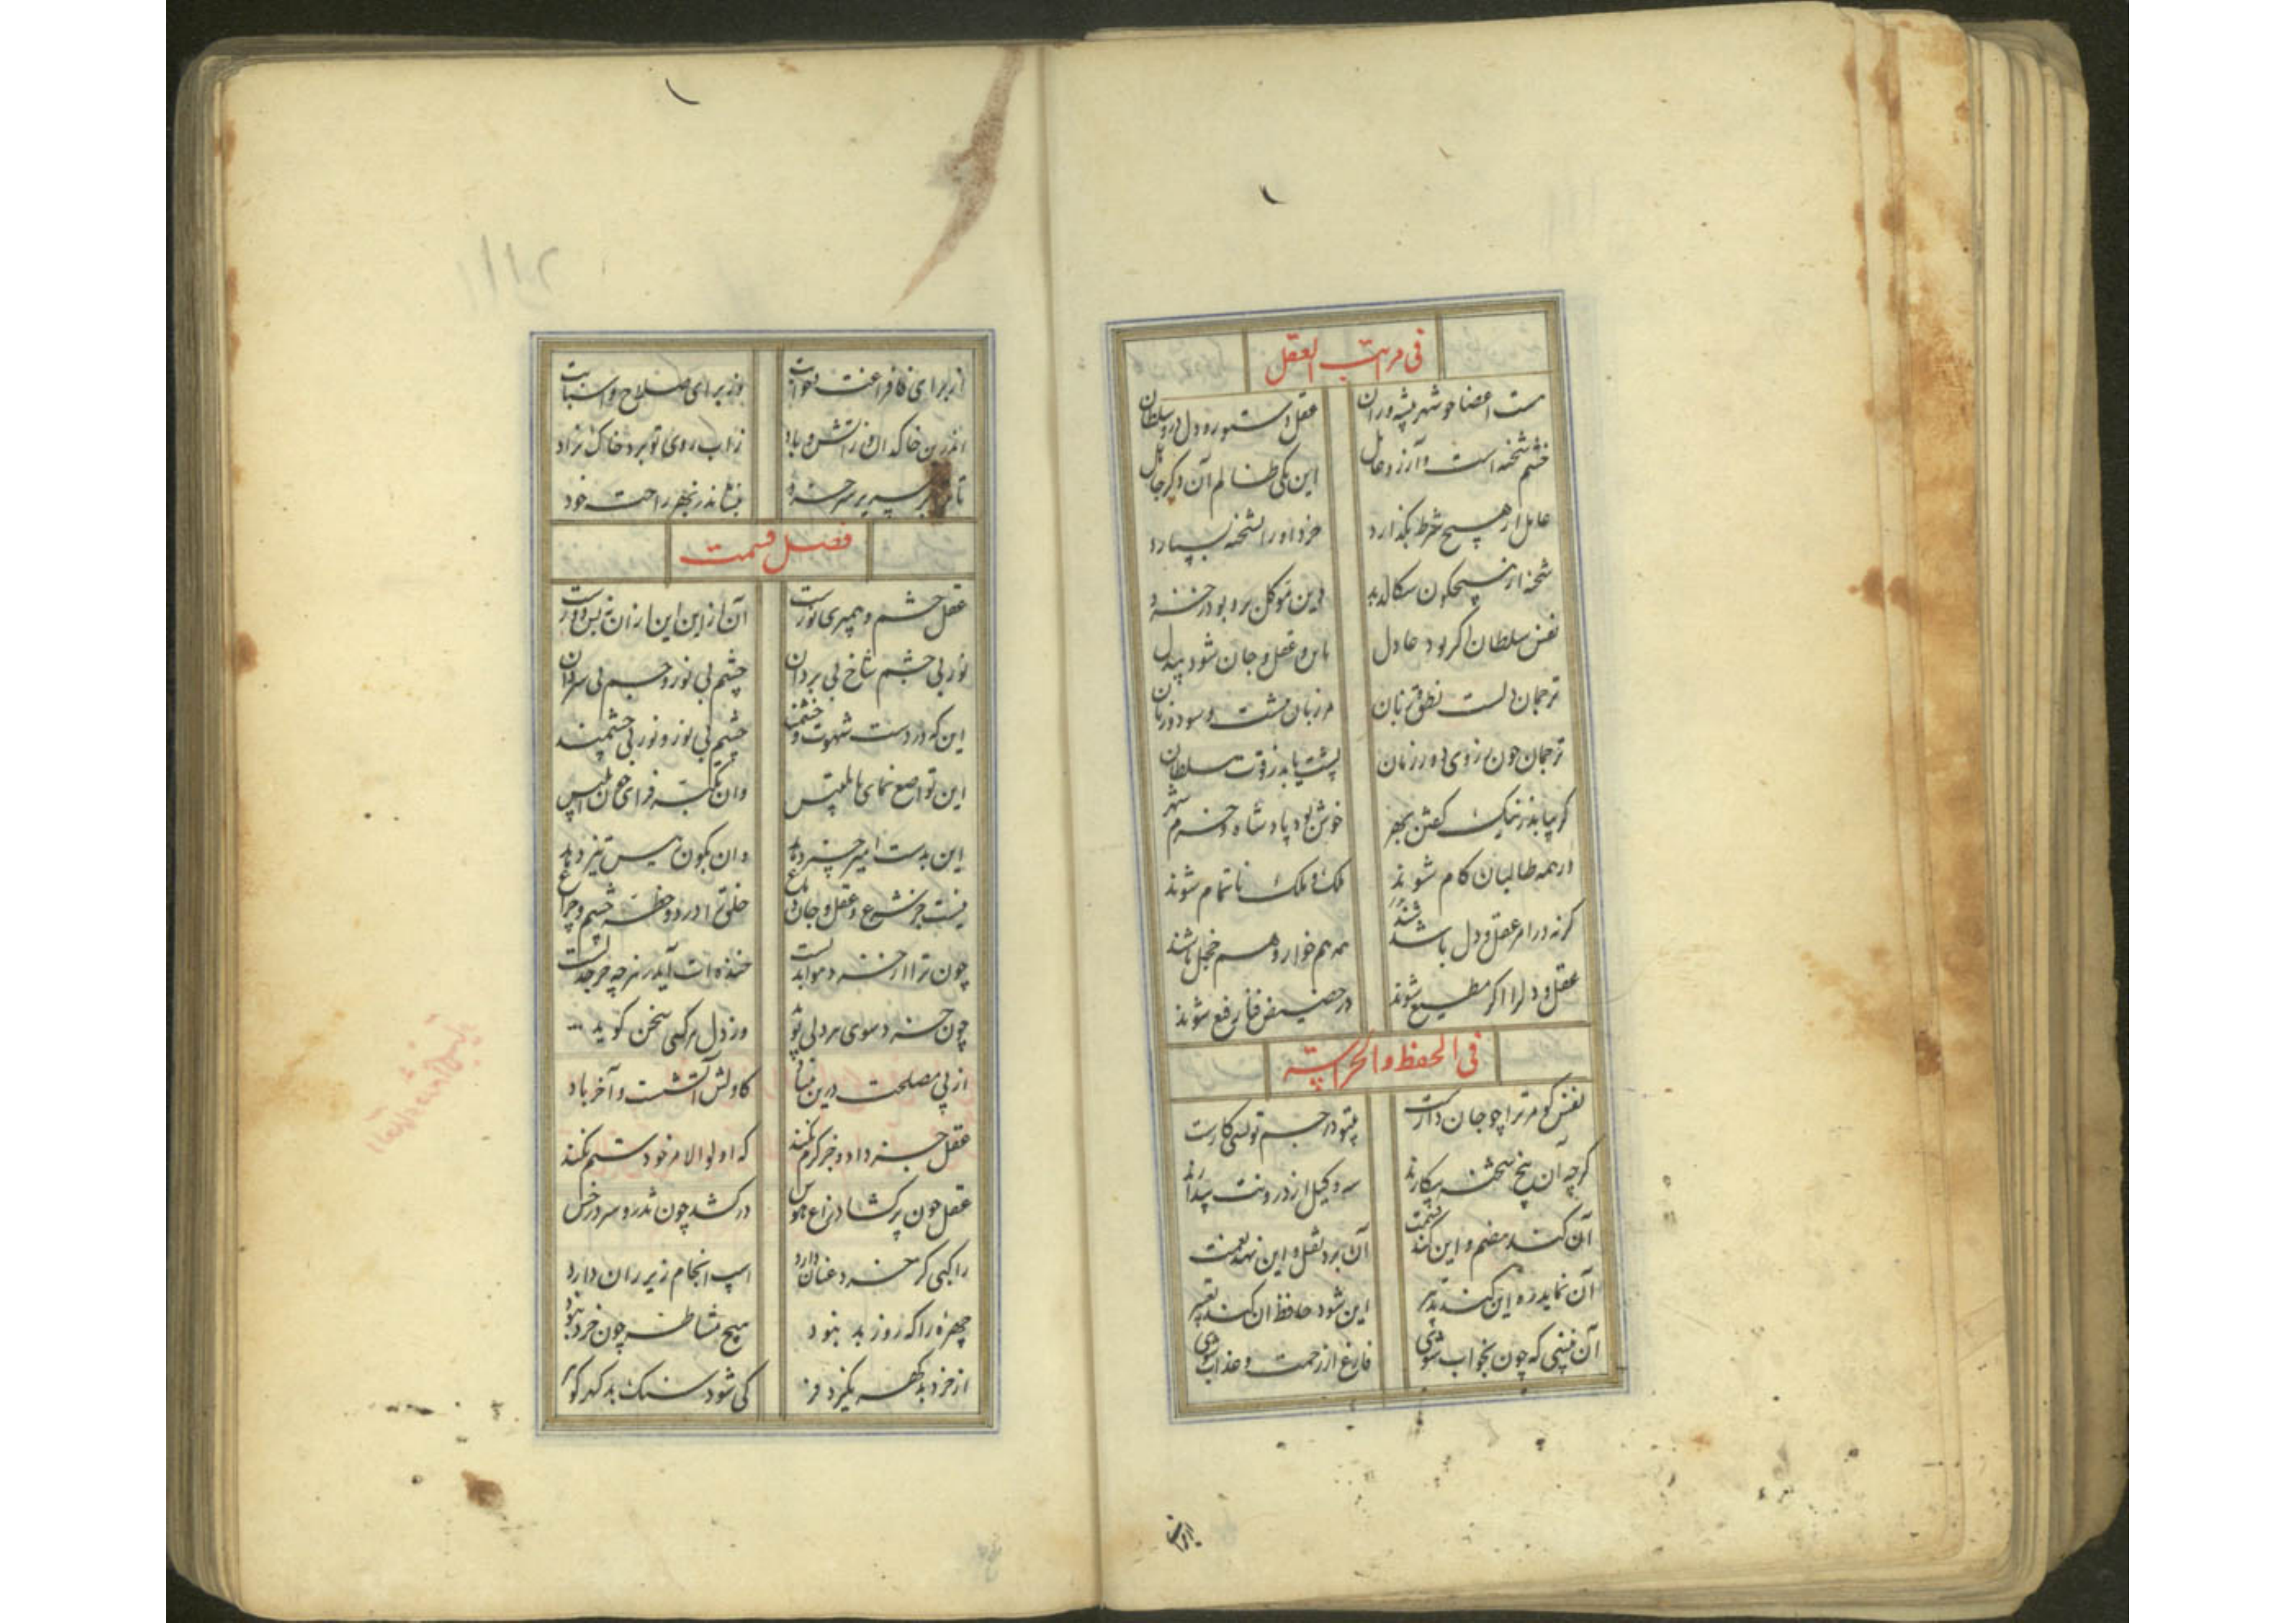 فی مراتب العقل
هست اعضا چو شهر پیشه وران عقل دستور و دل درو سلطان
خشم شحنه است و آرزو عامل این یکی ظالم آن دگر جاهل
عامل ار هیچ شرط بگذارد خرد او را بشحنه بسپارد
شحنه ار هیچگون سگالد بد دین موکل برو بود ز خرد
نفس سلطان اگر بود عادل با من و عقل و جان شود
ترجمان دلست نطق زبان مرزبان تنست و سود و زیان
ترجمان چون بروی دور زمان پشت یابد ز قوت سلطان
گر بیابد ز نیک گفتن بهر خوش بود پادشاه و خرم شهر
ور همه طالبان کام شوند ملک و ملک ناتمام شوند
گر نه در امر عقل و دل باشند همه هم خوار و هم خجل باشند
عقل و دل را اگر مطیع شوند در حضیض فنا رفیع شوند
فی الحفظ و الحراسة
نفس کو مر ترا چو جان دارست بیتو در جسم تو بسی کارست
گرچه آن پنج شحنه بیکارند سه وکیل از درونت بیدارند
آن کند هضم و این کند قسمت آن برد ثقل و این نهد نعمت
آن نماید ره این کند تدبیر این شود حافظ آن کند تعبیر
آن نبینی که چون بخواب شوی فارغ از زحمت و عذاب شوی
از برای
۱۱۴۲
از برای نه از غنت وز برای صلاح و اسبابت
اندرین خاکدان ز آتش و باد ز آب روی تو برد خاک نژاد
تا سریر بر سر خرد بنشاندز بهر راحت خود
فصل قسمت
عقل چشم و پیمبری نورست آن ازین این از آن نه بس دورست
نور بی چشم شاخ بی بر دان چشم بی نور جسم بی سر دان
این که در دست شهوت و خشمند چشم بی نور و نور بی چشمند
این تواضع نمای با تلبیس وان تکبر فزای چون ابلیس
این بدست امیر چیز دهد وان بکون تیز دهد
نیست جز شرع و عقل و جان و دماغ خلق را در دو خطه چشم و چراغ
چون ترا از خرد مو ابدلست خنده ات آید از هر چه جز جدلست
چون خرد سوی هر دلی پوید وز دل هر کسی سخن گوید
از پی مصلحت درین بنیاد کاولش آتشست و آخر باد
عقل جز داد و جز کرم نکند که اولوالامر خود ستم نکند
عقل چون پر گشاد زاغ هوس درکشد چون تذرو سر در خس
راکبی کز خرد عنان دارد اسب انجام زیر ران دارد
چهره را که روز بد نبود هیچ مشاطه چون خرد نبود
از خرد بد گهر نگیرد فر کی شود سنگ بد گهر گوهر